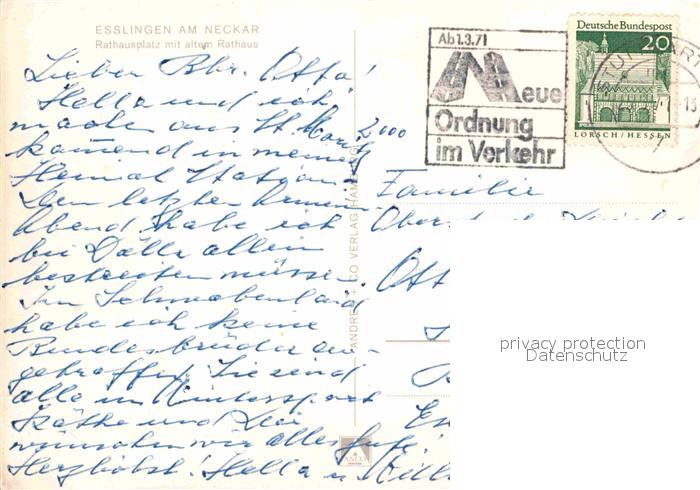 ESSLINGEN AM NECKAR
Rathausplatz mit altem Rathaus
Lieber Bbr. Otto!
Hella und ich
machen aus St. Moritz 2000
kommend in meiner
Heimat Station.
Den letzten
Abend habe ich
bei allein
bestreiten müssen.
Im Schwabenland
habe ich keine
Bundesbrüder an-
getroffen. Sie sind
alle im Wintersport
Käthe und Dir
wünschen wir alles Gute!
Herzlichst! Hella u. Willi
ANDRES + CO VERLAG HAM
ANCO
Ab 1.3.71
Neue
Ordnung
im Verkehr
Deutsche Bundespost
20
LORSCH/HESSEN
STUTTGART
Familie
Ott
privacy protection
Datenschutz